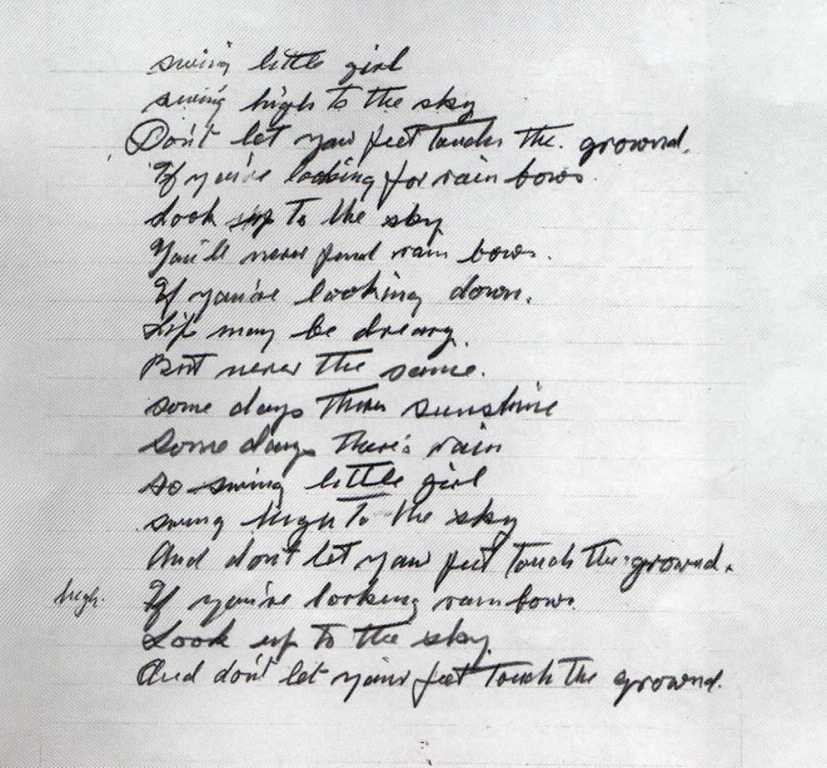 swing little girl
swing high to the sky
Don't let your feet touch the ground.
If you're looking for rain bows
Look up to the sky
You'll never find rain bows.
If you're looking down.
Life may be dreary.
But never the same.
some days theres sunshine
Some days there's rain
so swing little girl
swing high to the sky
And don't let your feet touch the ground.
high. If you're looking rainbows
Look up to the sky.
And don't let your feet touch the ground.